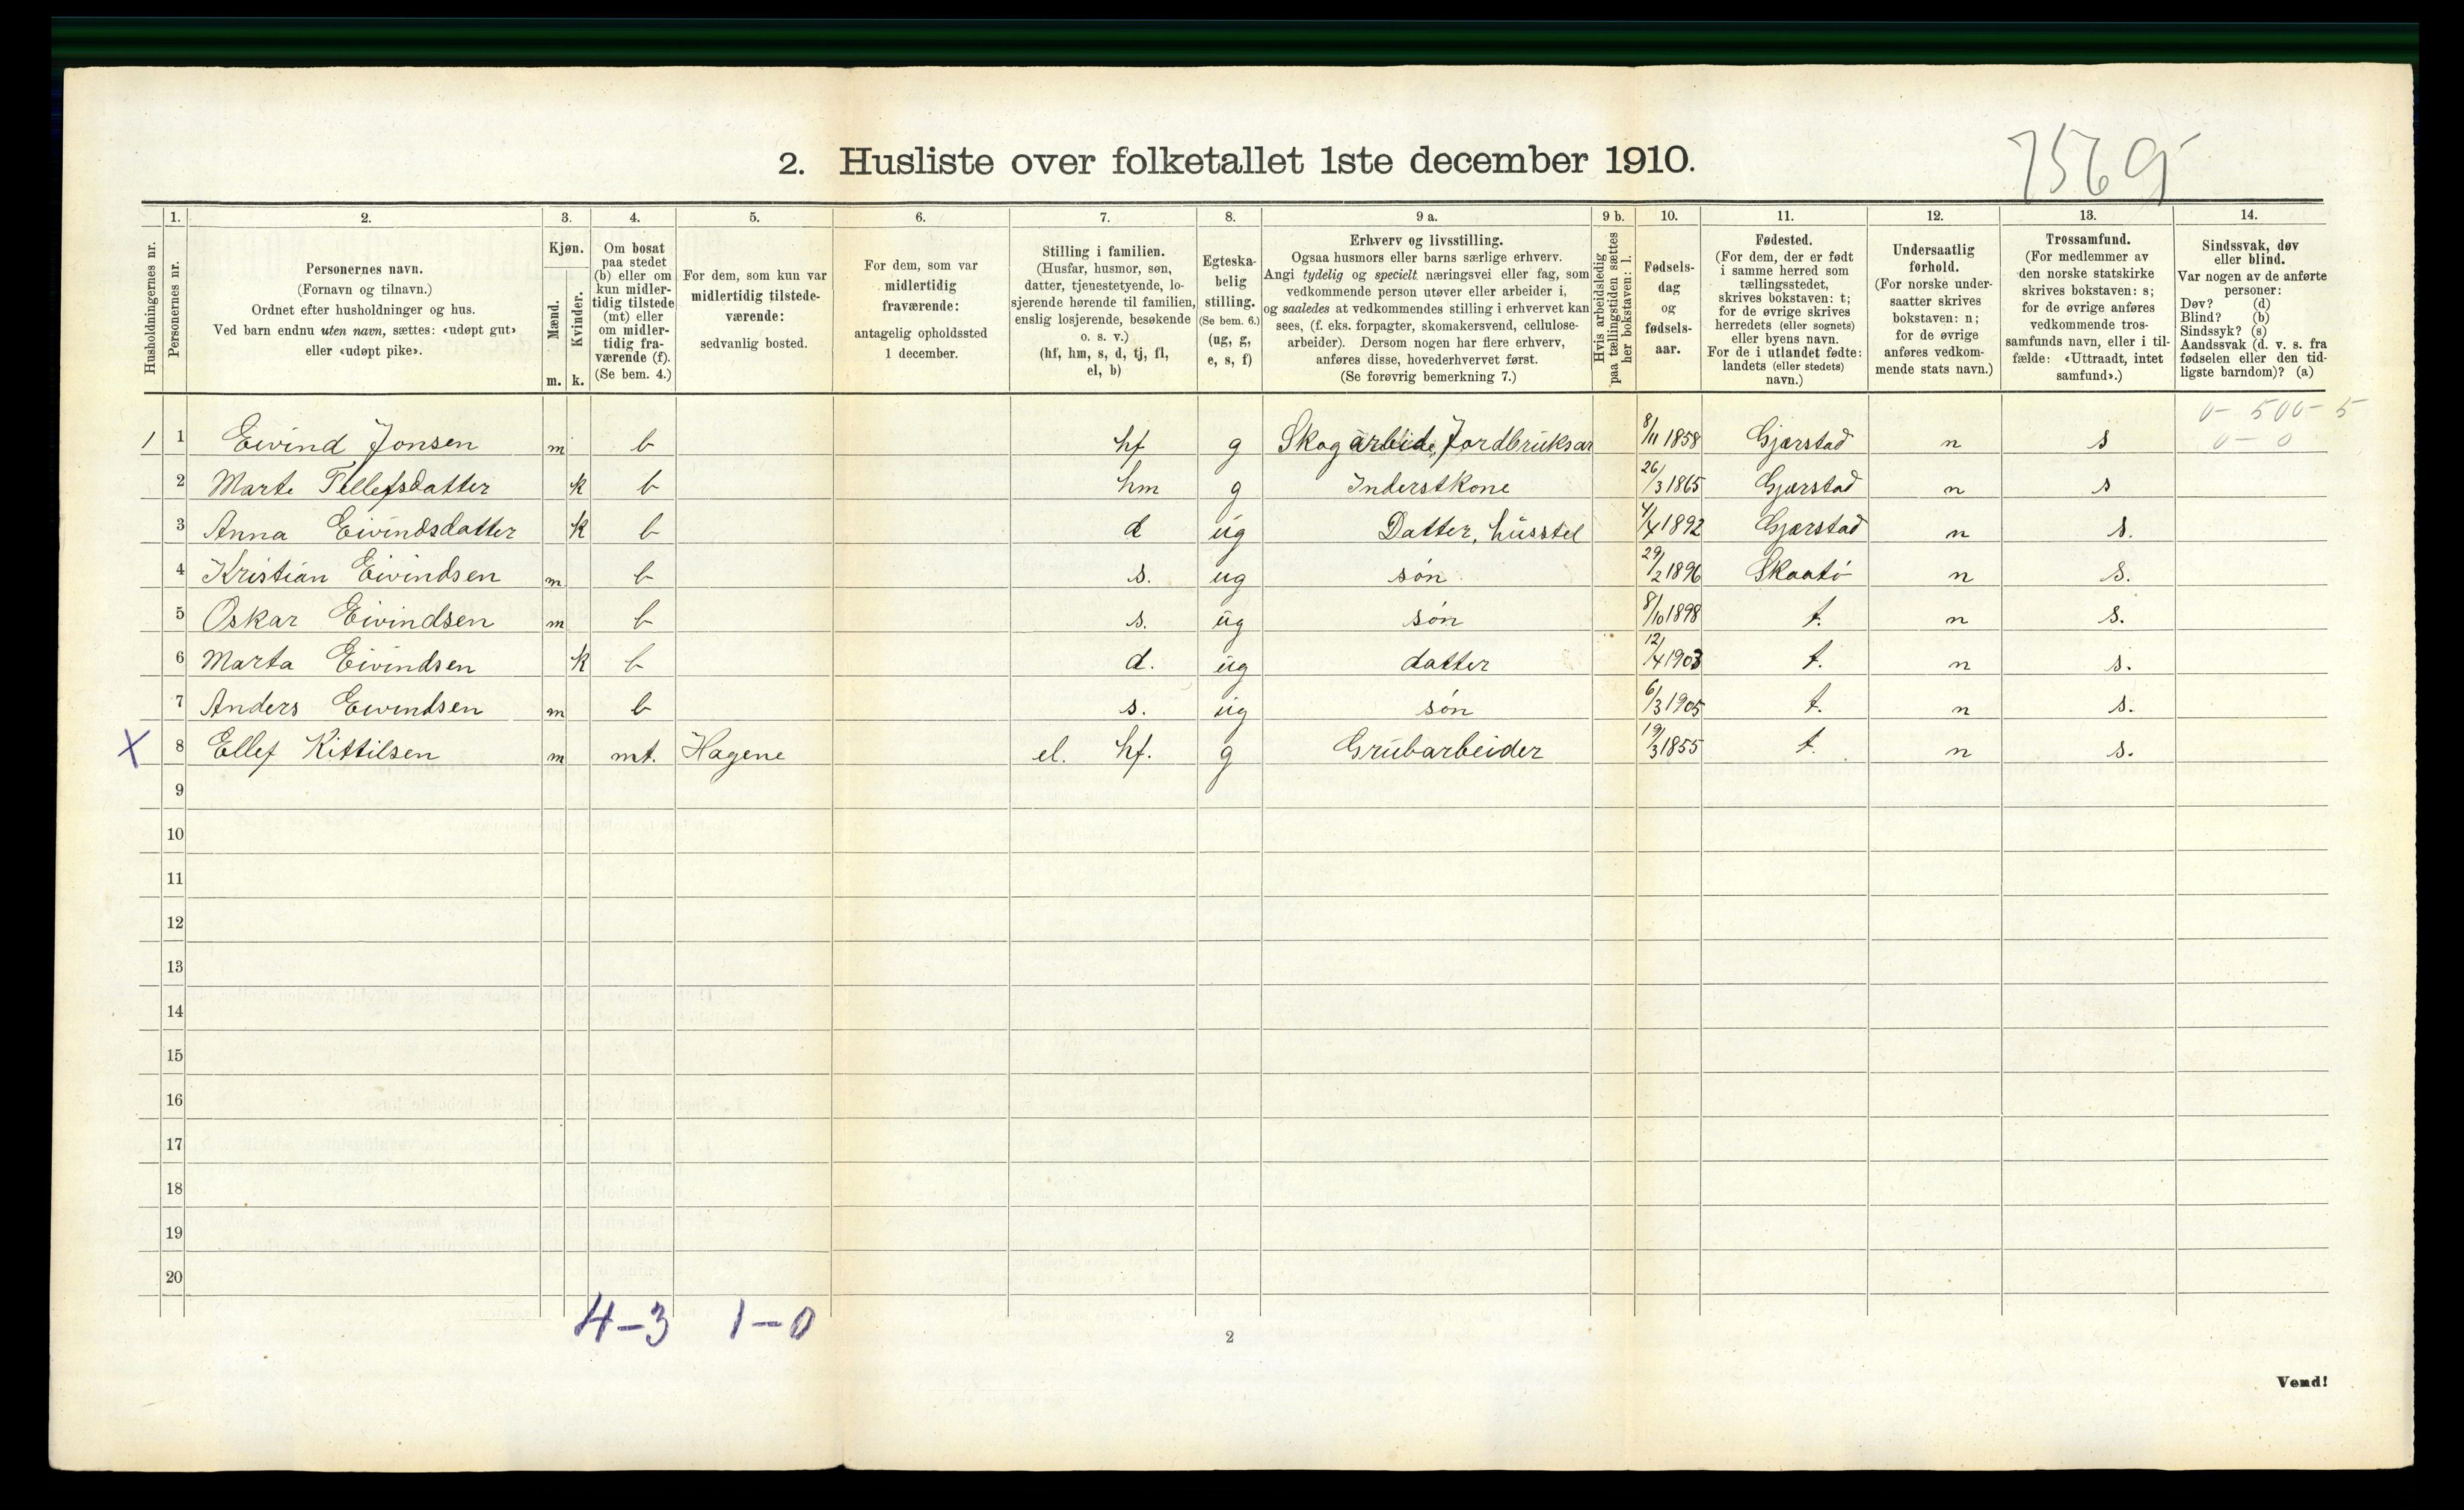 7569
2. Husliste over folketallet 1ste december 1910.
1. 2. 3. 4. 5. 6. 7. 8. 9 a. 9 b. 10. 11. 12. 13. 14.
Husholdningernes nr.
Personernes nr.
Personernes navn.
(Fornavn og tilnavn.)
Ordnet efter husholdninger og hus.
Ved barn endnu uten navn, sættes: «udøpt gut»
eller «udøpt pike».
Kjøn.
Mænd.
Kvinder.
m. k.
Om bosat
paa stedet
(b) eller om
kun midler-
tidig tilstede
(mt) eller
om midler-
tidig fra-
værende (f).
(Se bem. 4.)
For dem, som kun var
midlertidig tilstede-
værende:
sedvanlig bosted.
For dem, som var
midlertidig
fraværende:
antagelig opholdssted
1 december.
Stilling i familien.
(Husfar, husmor, søn,
datter, tjenestetyende, lo-
sjerende hørende til familien,
enslig losjerende, besøkende
o. s. v.)
(hf, hm, s, d, tj, fl,
el, b)
Egteska-
belig
stilling.
(Se bem. 6.)
(ug, g,
e, s, f)
Erhverv og livsstilling.
Ogsaa husmors eller barns særlige erhverv.
Angi tydelig og specielt næringsvei eller fag, som
vedkommende person utøver eller arbeider i,
og saaledes at vedkommendes stilling i erhvervet kan
sees, (f. eks. forpagter, skomakersvend, cellulose-
arbeider). Dersom nogen har flere erhverv,
anføres disse, hovederhvervet først.
(Se forøvrig bemerkning 7.)
Hvis arbeidsledig
paa tællingstiden sættes
her bokstaven: l.
Fødsels-
dag
og
fødsels-
aar.
Fødested.
(For dem, der er født
i samme herred som
tællingsstedet,
skrives bokstaven: t;
for de øvrige skrives
herredets (eller sognets)
eller byens navn.
For de i utlandet fødte:
landets (eller stedets)
navn.)
Undersaatlig
forhold.
(For norske under-
saatter skrives
bokstaven: n;
for de øvrige
anføres vedkom-
mende stats navn.)
Trossamfund.
(For medlemmer av
den norske statskirke
skrives bokstaven: s;
for de øvrige anføres
vedkommende tros-
samfunds navn, eller i til-
fælde: «Uttraadt, intet
samfund».)
Sindssvak, døv
eller blind.
Var nogen av de anførte
personer:
Døv? (d)
Blind? (b)
Sindssyk? (s)
Aandssvak (d. v. s. fra
fødselen eller den tid-
ligste barndom)? (a)
0- 500- 5
0-0
1 1 Eivind Jonsen m b hf g Skogarbeide, Jordbruksar 8/11 1858 Gjærstad n s
2 Marte Tellefsdatter k b hm g Inderstkone 26/3 1865 Gjærstad n s
3 Anna Eivindsdatter k b d ug Datter, husstel 4/4 1892 Gjærstad n s.
4 Kristian Eivindsen m b s. ug søn 29/2 1896 Skaatø n s.
5 Oskar Eivindsen m b s. ug søn 8/10 1898 t. n s.
6 Marta Eivindsen k b d. ug datter 12/4 1903 t. n s.
7 Anders Eivindsen m b s. ug søn 6/3 1905 t. n s.
X 8 Ellef Kittilsen m mt. Hagene el. hf. g Grubarbeider 19/3 1855 t. n s.
9
10
11
12
13
14
15
16
17
18
19
20
4-3 1-0
2
Vend!